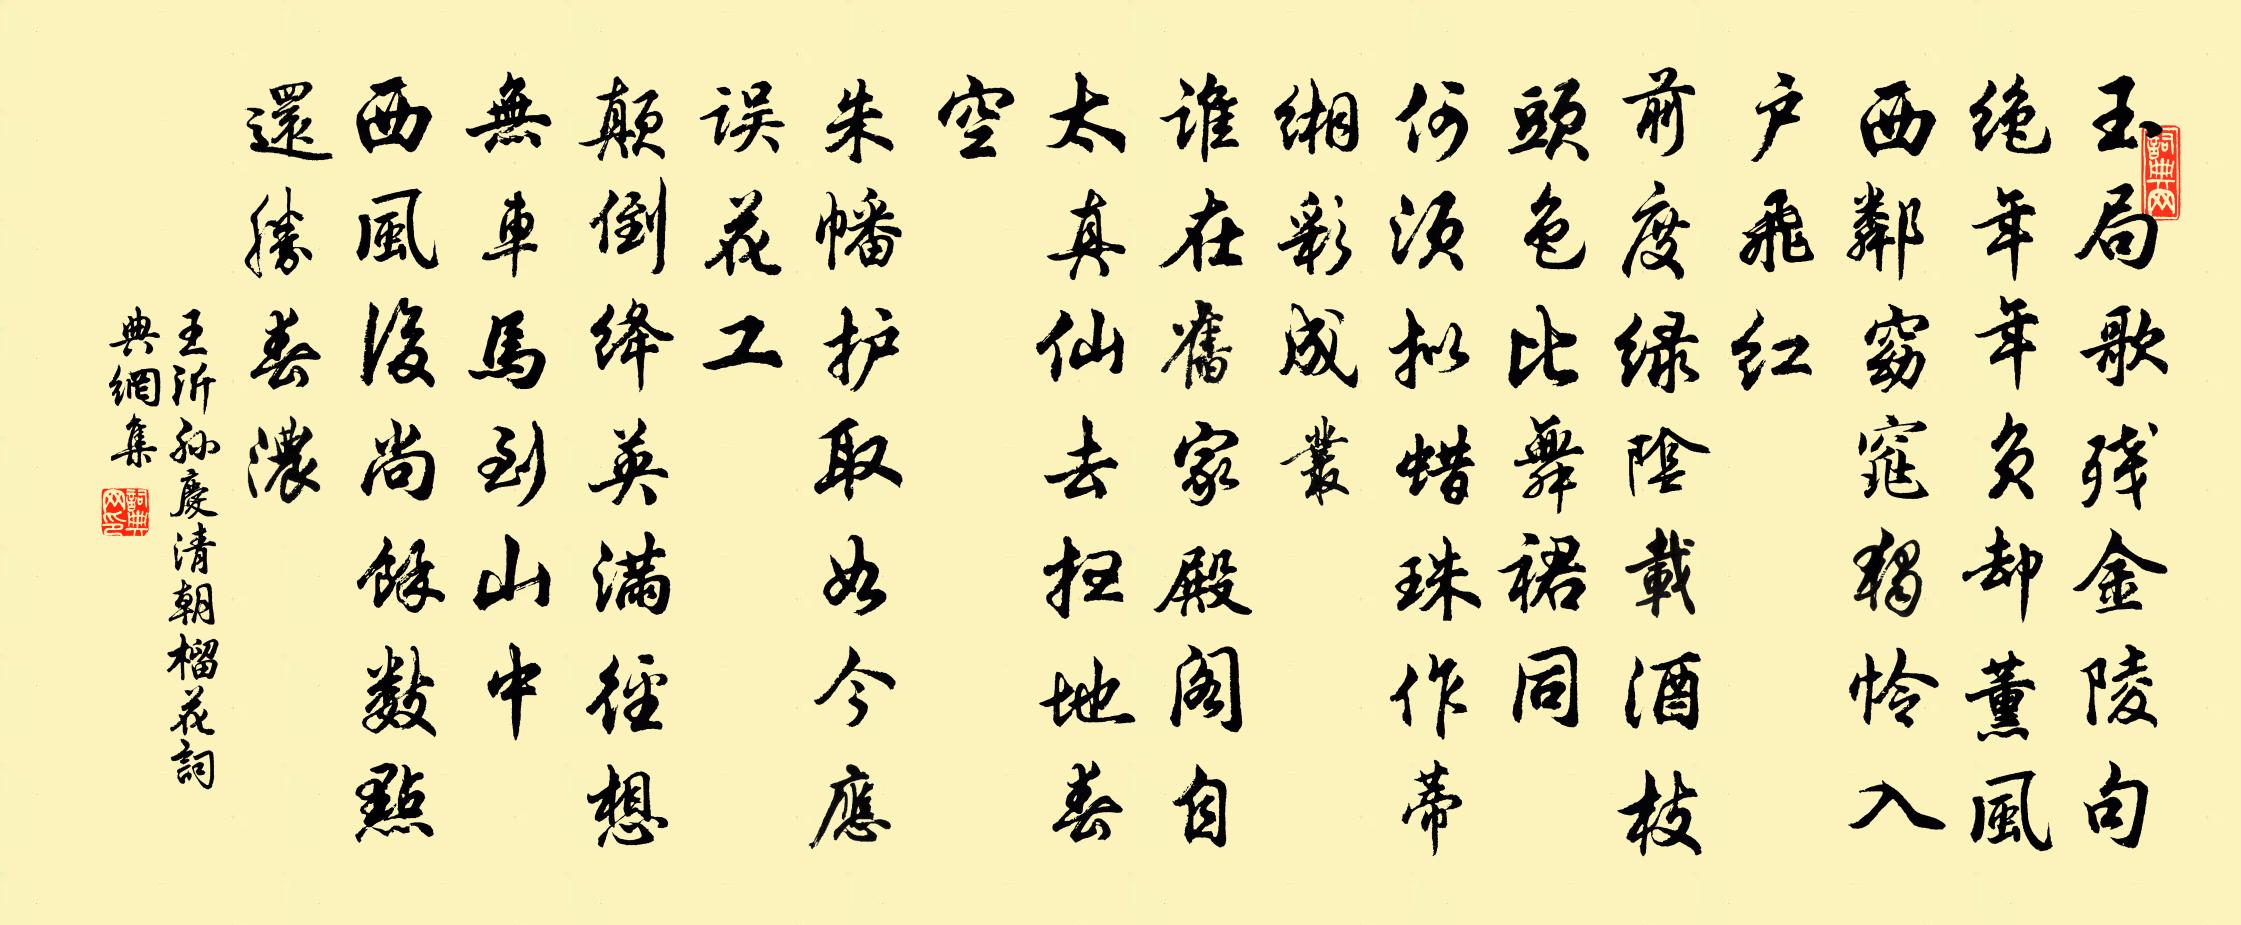 玉局歌残金陵句
绝年年负却薰风
西鄰窈窕獨怜入
户飛红
前度绿陰載酒枝
頭色比舞裙同
何须拟蜡珠作蒂
缃彩成叢
谁在舊家殿阁自
太真仙去扫地春
空
朱幡护取如今應
误花工
颠倒绛英满径想
無車馬到山中
西風後尚餘数點
還勝春濃
王沂孙慶清朝榴花詞
典網集
詞典网
詞典网印